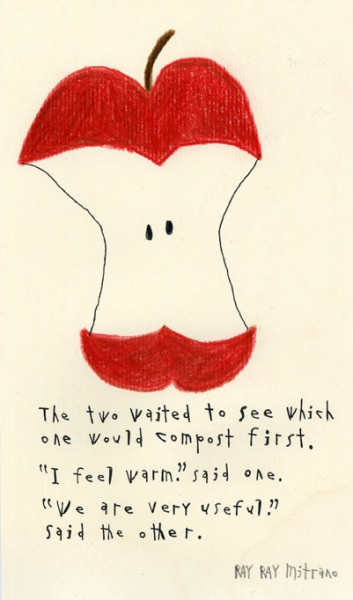 The two waited to see which
one would compost first.
"I feel warm." said one.
"We are very useful."
said the other.
RAY RAY Mitrano